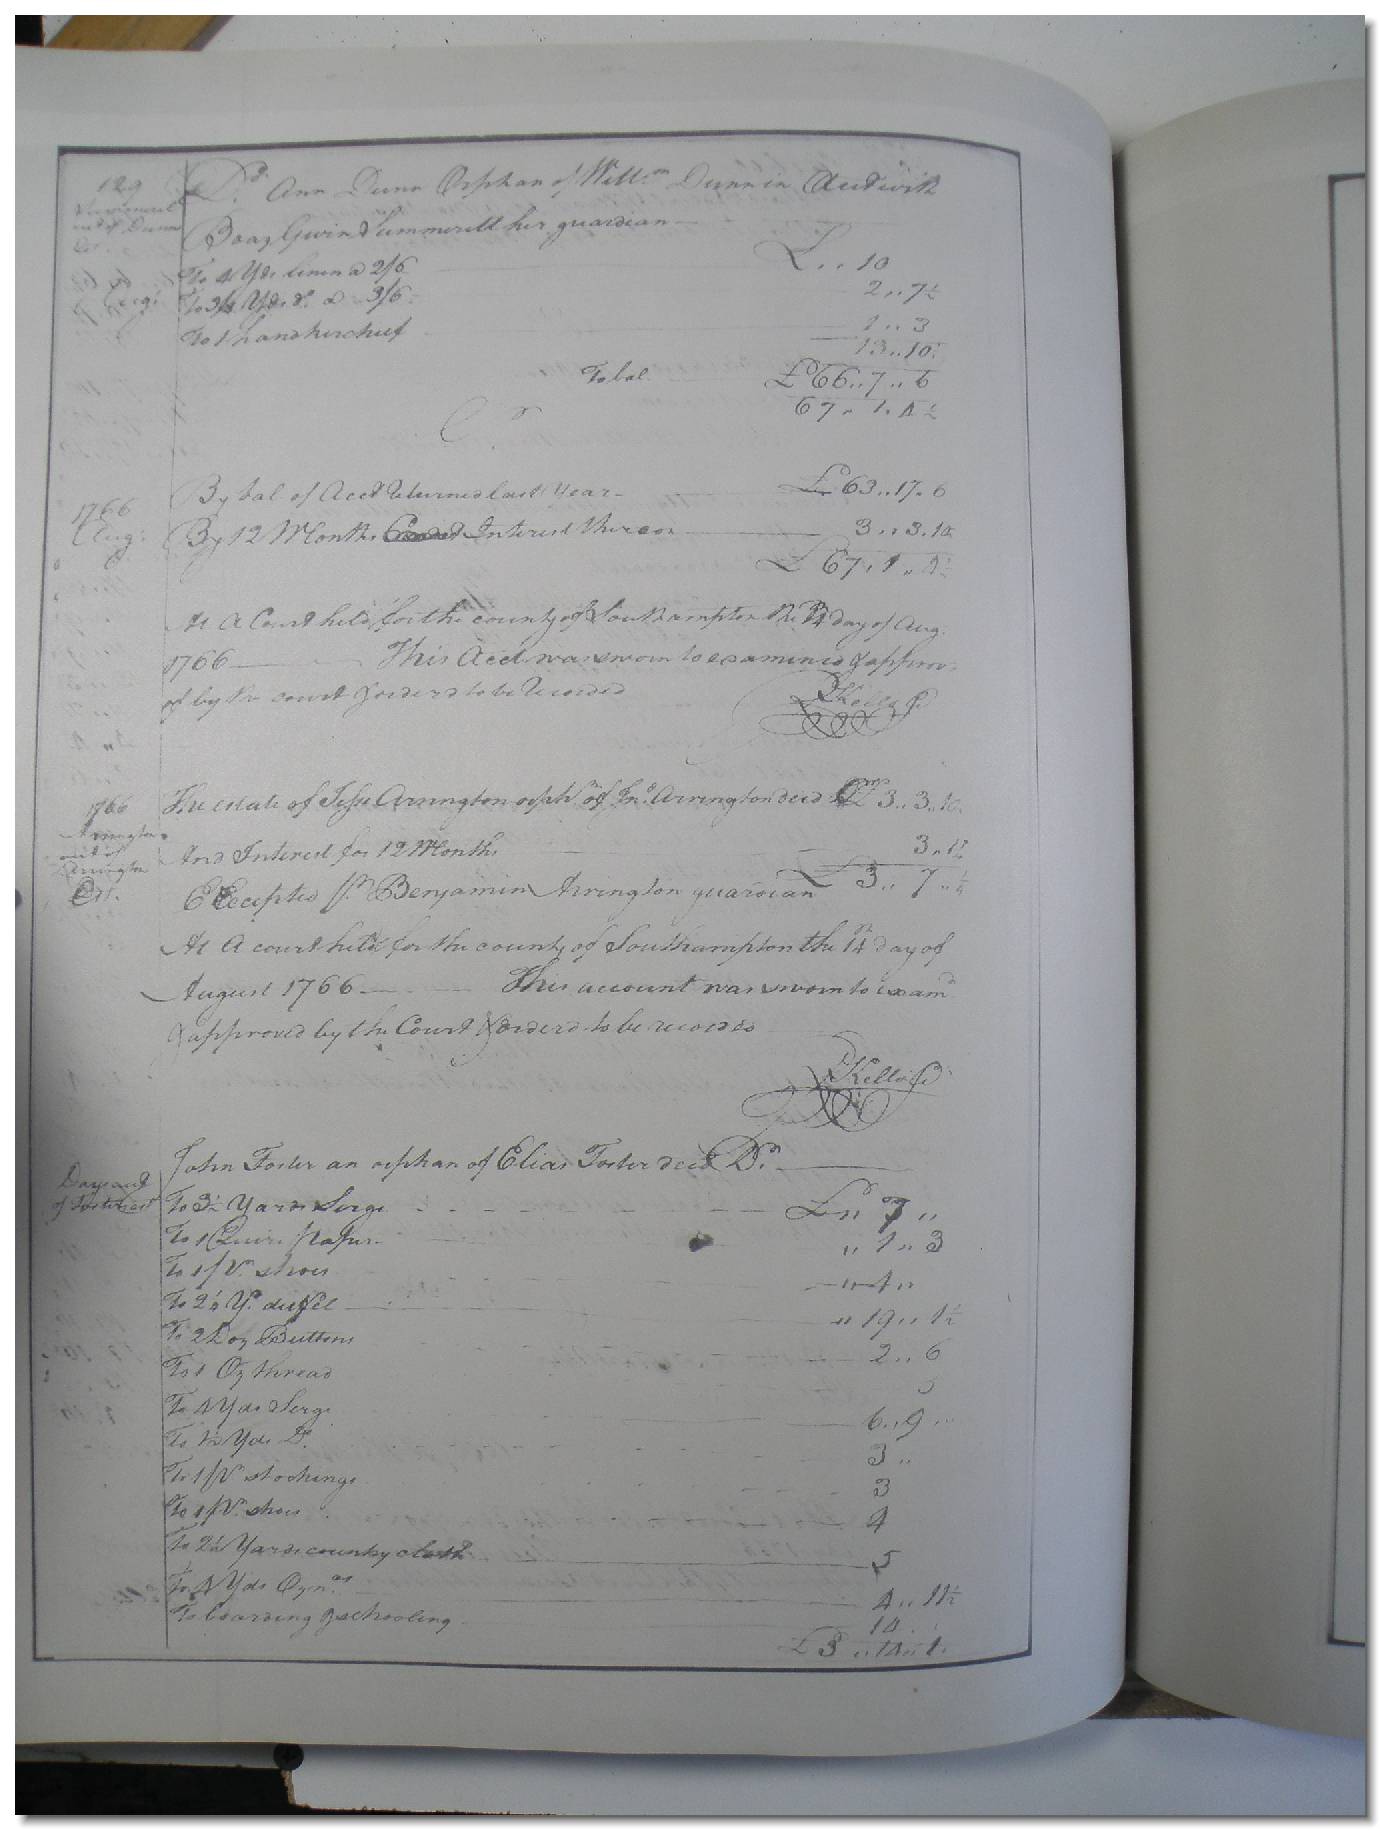 129
Dr. Ann Dunn Orphan of Willm Dunn in Acct with
out of Dunn
Est.
Boaz Gwin Summerell her guardian
To 4 Yds linen a 2/6 £ ,, 10
Aug: To 3/4 Yds do a 3/6 2 ,, 7½
To 1 handkerchief 1 ,, 3
13 ,, 10½
Total £66 ,, 7 ,, 6
67 ,, 1 ,, 4½
Cr
1766
Aug:
By bal of Acct Returned last Year £63 ,, 17 ,, 6
By 12 Months Interest thereon 3 ,, 3 ,, 10
£ 67 ,, 1 ,, 4½
At A Court held for the county of Southampton the 14 day of Aug.
1766 This Acct was sworn to examined & approv
of by the court & orderd to be Recorded
RKello C
1766
Arrington
out of
Arrington
Est.
The estate of Jesse Arrington orphn of Jno Arrington decd 3 ,, 3 ,, 10
And Interest for 12 Months 3 ,, 2¼
£ 3 ,, 7 ,, ¼
E Excepted pr Benjamin Arrington guardian
At A court held for the county of Southampton the 14 day of
August 1766 This account was sworn to examd
& approved by the Court & orderd to be recorded
RKello C
Day out
of Foster est
John Foster an orphan of Elias Foster decd Dr.
To 3½ Yards Serge £ ,, 7 ,,
To 1 Quire paper ,, 1 ,, 3
To 1 pr shoes ,, 4 ,,
To 2¼ Yd duffel ,, 19 ,, 1½
To 2 Doz Buttons 2 ,, 6
To 1 Oz thread 3
To 4 Yds Serge 6 ,, 9
To ½ Yds Do. 3 ,,
To 1 pr stockings 3
To 1 pr shoes 4
To 2½ Yards country cloth 5
To 4 Yds Ozns 4 ,, 11½
To boarding & schooling 14
£ 3 ,, 14 ,, 1